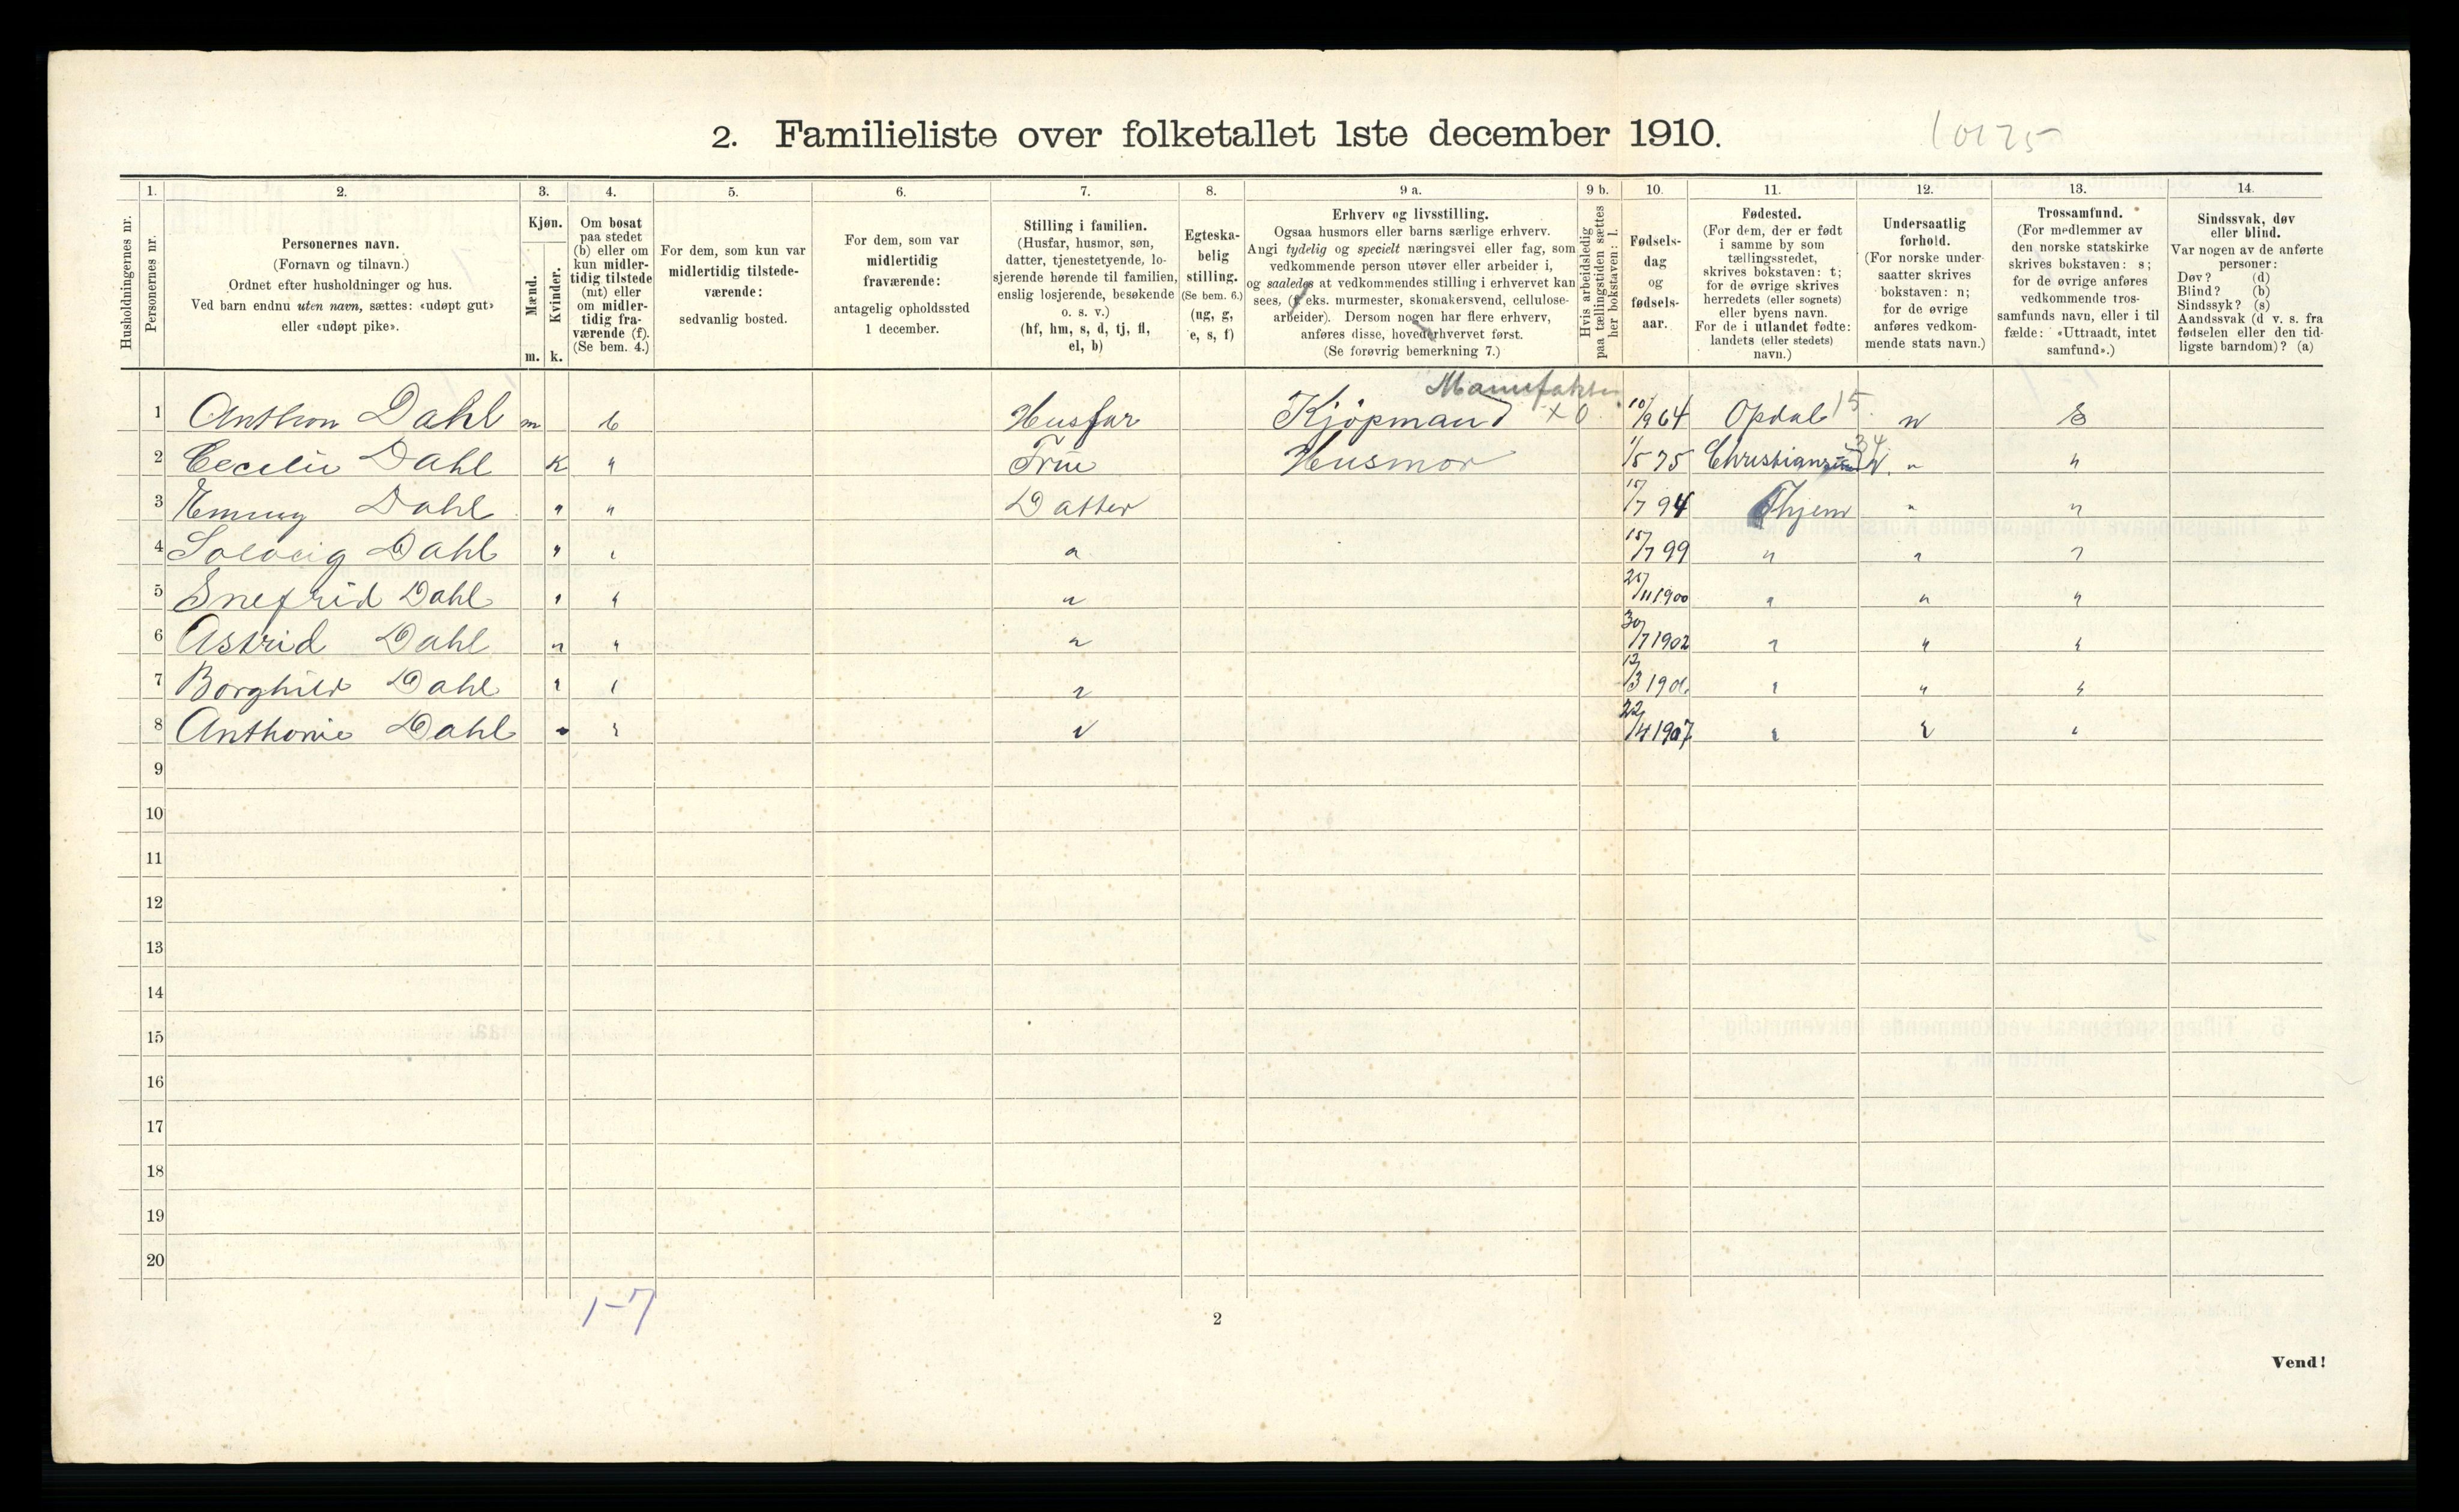 2. Familieliste over folketallet 1ste december 1910.
Husholdningernes nr.
1.
Personernes nr.
2.
Personernes navn.
(Fornavn og tilnavn.)
Ordnet efter husholdninger og hus.
Ved barn endnu uten navn, sættes: «udøpt gut»
eller «udøpt pike».
3.
Kjøn.
Mænd.
Kvinder.
m. k.
4.
Om bosat
paa stedet
(b) eller om
kun midler-
tidig tilstede
(mt) eller
om midler-
tidig fra-
værende (f).
(Se bem. 4.)
5.
For dem, som kun var
midlertidig tilstede-
værende:
sedvanlig bosted.
6.
For dem, som var
midlertidig
fraværende:
antagelig opholdssted
1 december.
7.
Stilling i familien.
(Husfar, husmor, søn,
datter, tjenestetyende, lo-
sjerende hørende til familien,
enslig losjerende, besøkende
o. s. v.)
(hf, hm, s, d, tj, fl,
el, b)
8.
Egteska-
belig
stilling.
(Se bem. 6.)
(ug, g,
e, s, f)
9 a.
Erhverv og livsstilling.
Ogsaa husmors eller barns særlige erhverv.
Angi tydelig og specielt næringsvei eller fag, som
vedkommende person utøver eller arbeider i,
og saaledes at vedkommendes stilling i erhvervet kan
sees, (f. eks. murmester, skomakersvend, cellulose-
arbeider). Dersom nogen har flere erhverv,
anføres disse, hovederhvervet først.
(Se forøvrig bemerkning 7.)
9 b.
Hvis arbeidsledig
paa tællingstiden sættes
her bokstaven: l.
10.
Fødsels-
dag
og
fødsels-
aar.
11.
Fødested.
(For dem, der er født
i samme by som
tællingsstedet,
skrives bokstaven: t;
for de øvrige skrives
herredets (eller sognets)
eller byens navn.
For de i utlandet fødte:
landets (eller stedets)
navn.)
12.
Undersaatlig
forhold.
(For norske under-
saatter skrives
bokstaven: n;
for de øvrige
anføres vedkom-
mende stats navn.)
13.
Trossamfund.
(For medlemmer av
den norske statskirke
skrives bokstaven: s;
for de øvrige anføres
vedkommende tros-
samfunds navn, eller i til
fælde: «Uttraadt, intet
samfund».)
14.
Sindssvak, døv
eller blind.
Var nogen av de anførte
personer:
Døv? (d)
Blind? (b)
Sindssyk? (s)
Aandssvak (d v. s. fra
fødselen eller den tid-
ligste barndom)? (a)
Manufaktur
1 Anthon Dahl m b Husfar Kjöpmand x 0 10/9 64 Opdal 15 n S
2 Cecelie Dahl K " Frue Husmor 1/5 75 34 " "
3 Emmy Dahl " " Datter 15/7 94 Thjem " "
4 Solveig Dahl " " " 15/7 99 " " "
5 Snefrid Dahl " " " 25/11 1900 " " "
6 Astrid Dahl " " " 30/7 1902 " " "
7 Borghild Dahl " " " " " "
8 Anthonie Dahl " " " 22/4 1907 " " "
9
10
11
12
13
14
15
16
17
18
19
20
1-7
2
Vend!